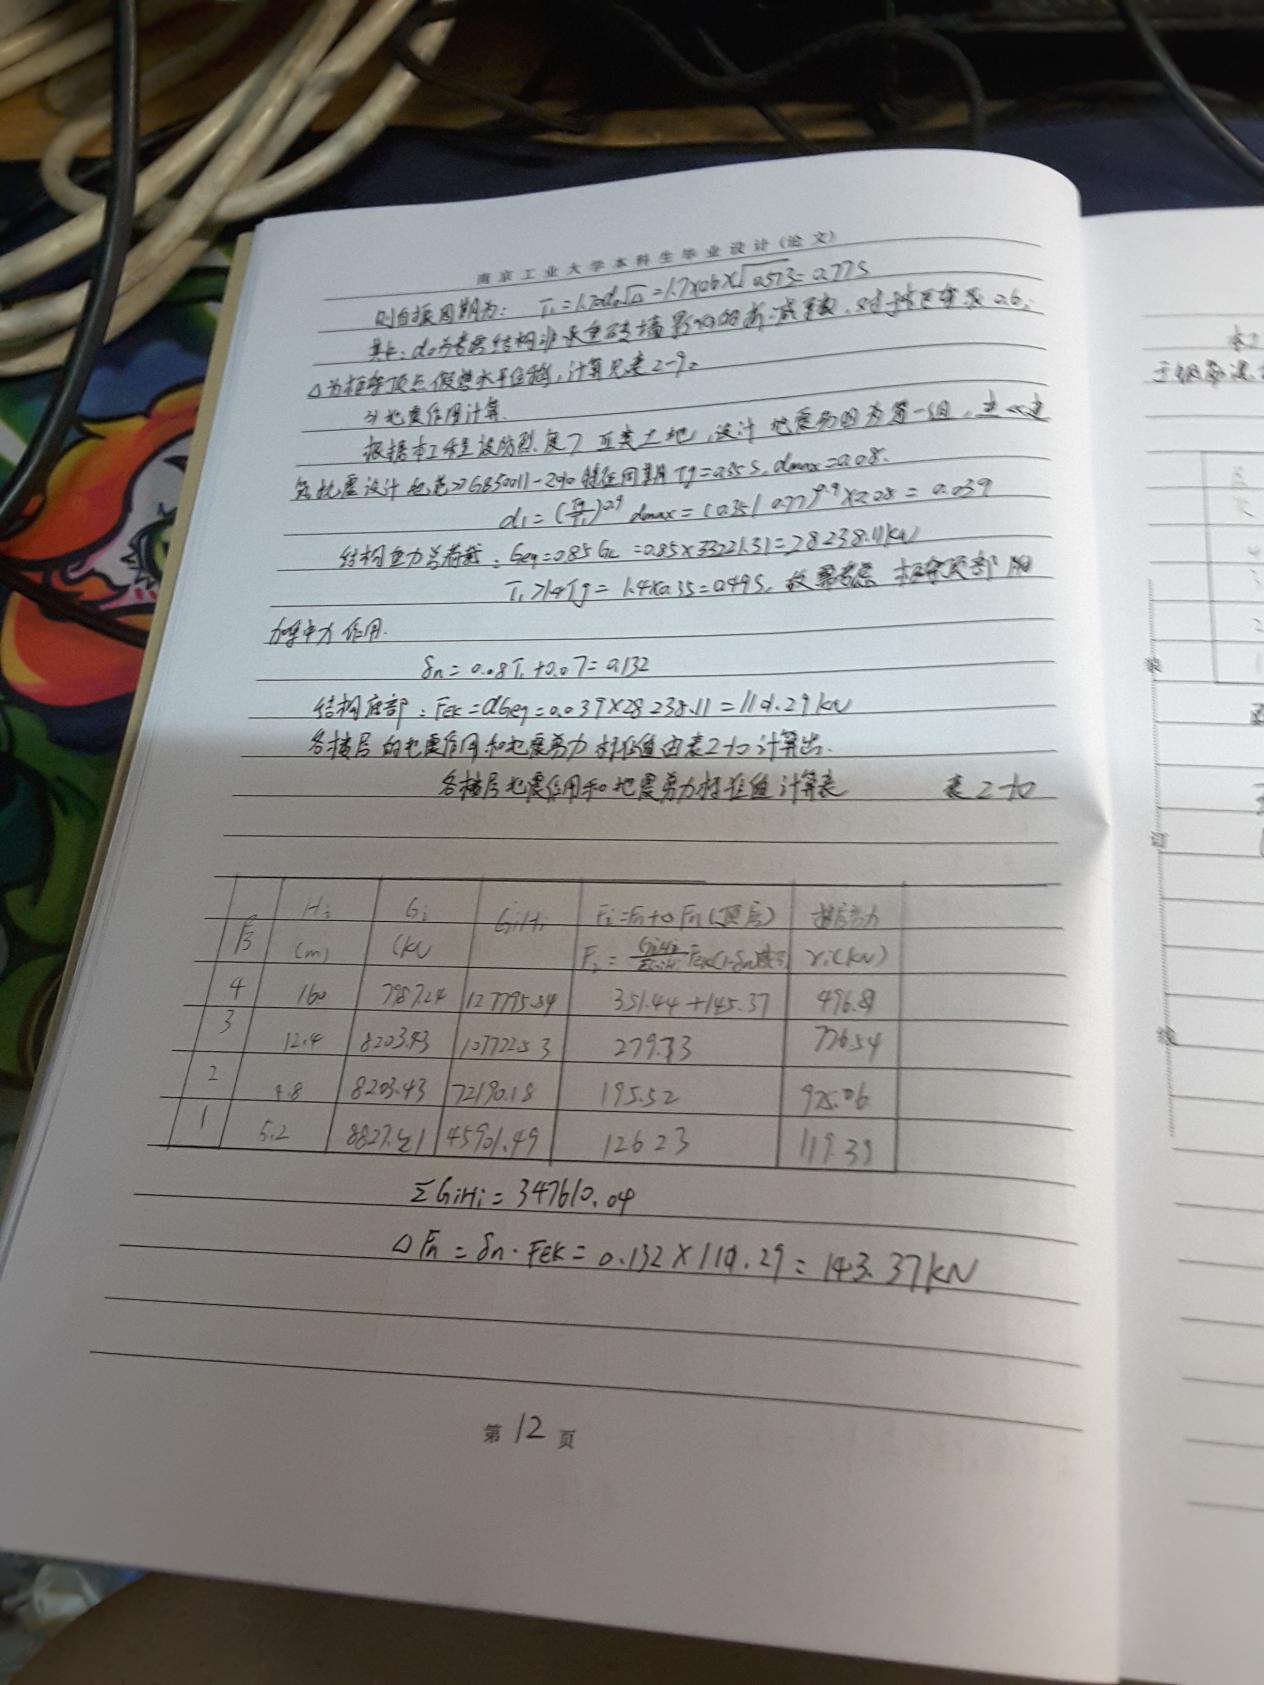 南京工业大学本科生毕业设计(论文)
则自振周期为: T₁=1.7α₀√Δ=1.7×0.6×√0.573=0.77S
其中: α₀为考虑结构非承重砖墙影响的折减系数,对于框架取0.6;
Δ为框架顶点假想水平位移,计算见表2-9。
3)地震作用计算.
根据本工程设防烈度7 Ⅱ类土地,设计地震分组为第一组,《建
筑抗震设计规范》GB50011-2010特征周期Tg=0.35S,αmax=0.08.
α₁=(Tg/T₁)^0.9 αmax=(0.35/0.77)^0.9×0.08=0.039
结构重力总荷载: Geq=0.85GL=0.85×33221.31=28238.11kN
T₁>1.4Tg=1.4×0.35=0.49S,故需考虑框架顶部附
加集中力作用.
δn=0.08T₁+0.07=0.132
结构底部: FEK=αGeq=0.039×28238.11=1101.29kN
各楼层的地震作用和地震剪力标准值由表2-10计算出.
各楼层地震作用和地震剪力标准值计算表 表2-10
层 Hi(m) Gi(kN GiHi Fi=Fn+ΔFn(顶层) 楼层剪力Vi(kN)
4 16.0 7987.24 127795.84 351.44+145.37 496.81
3 12.4 8203.43 101722.53 279.73 776.54
2 8.8 8203.43 72190.18 195.52 975.06
1 5.2 8827.21 45901.49 126.23 1101.29
ΣGiHi=347610.04
ΔFn=δn·FEK=0.132×1101.29=143.37kN
第12页
装
订
线